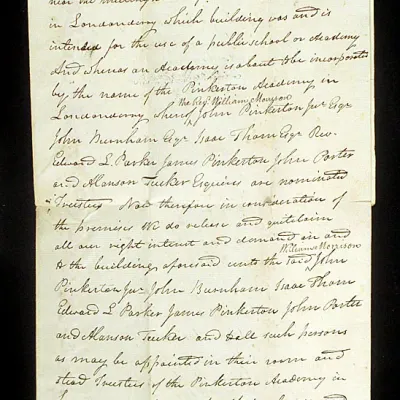 in Londonderry which building was and is
intended for the use of a public school or Academy
And whereas an Academy is about to be incorporated
by the name of the Pinkerton Academy in
the Rev. William Morrison
Londonderry where John Pinkerton Jur Esqr
John Burnham Esqr Isaac Thom Esqr Rev.
Edward L Parker James Pinkerton John Porter
and Alanson Tucker Esquires are nominated
Trustees Now therefore in consideration of
the premises We do release and quitclaim
all our right interest and demand in and
William Morrison
to the building aforesaid unto the said John
Pinkerton Jur John Burnham Isaac Thom
Edward L Parker James Pinkerton John Porter
and Alanson Tucker and such persons
as may be appointed in their room and
stead Trustees of the Pinkerton Academy in